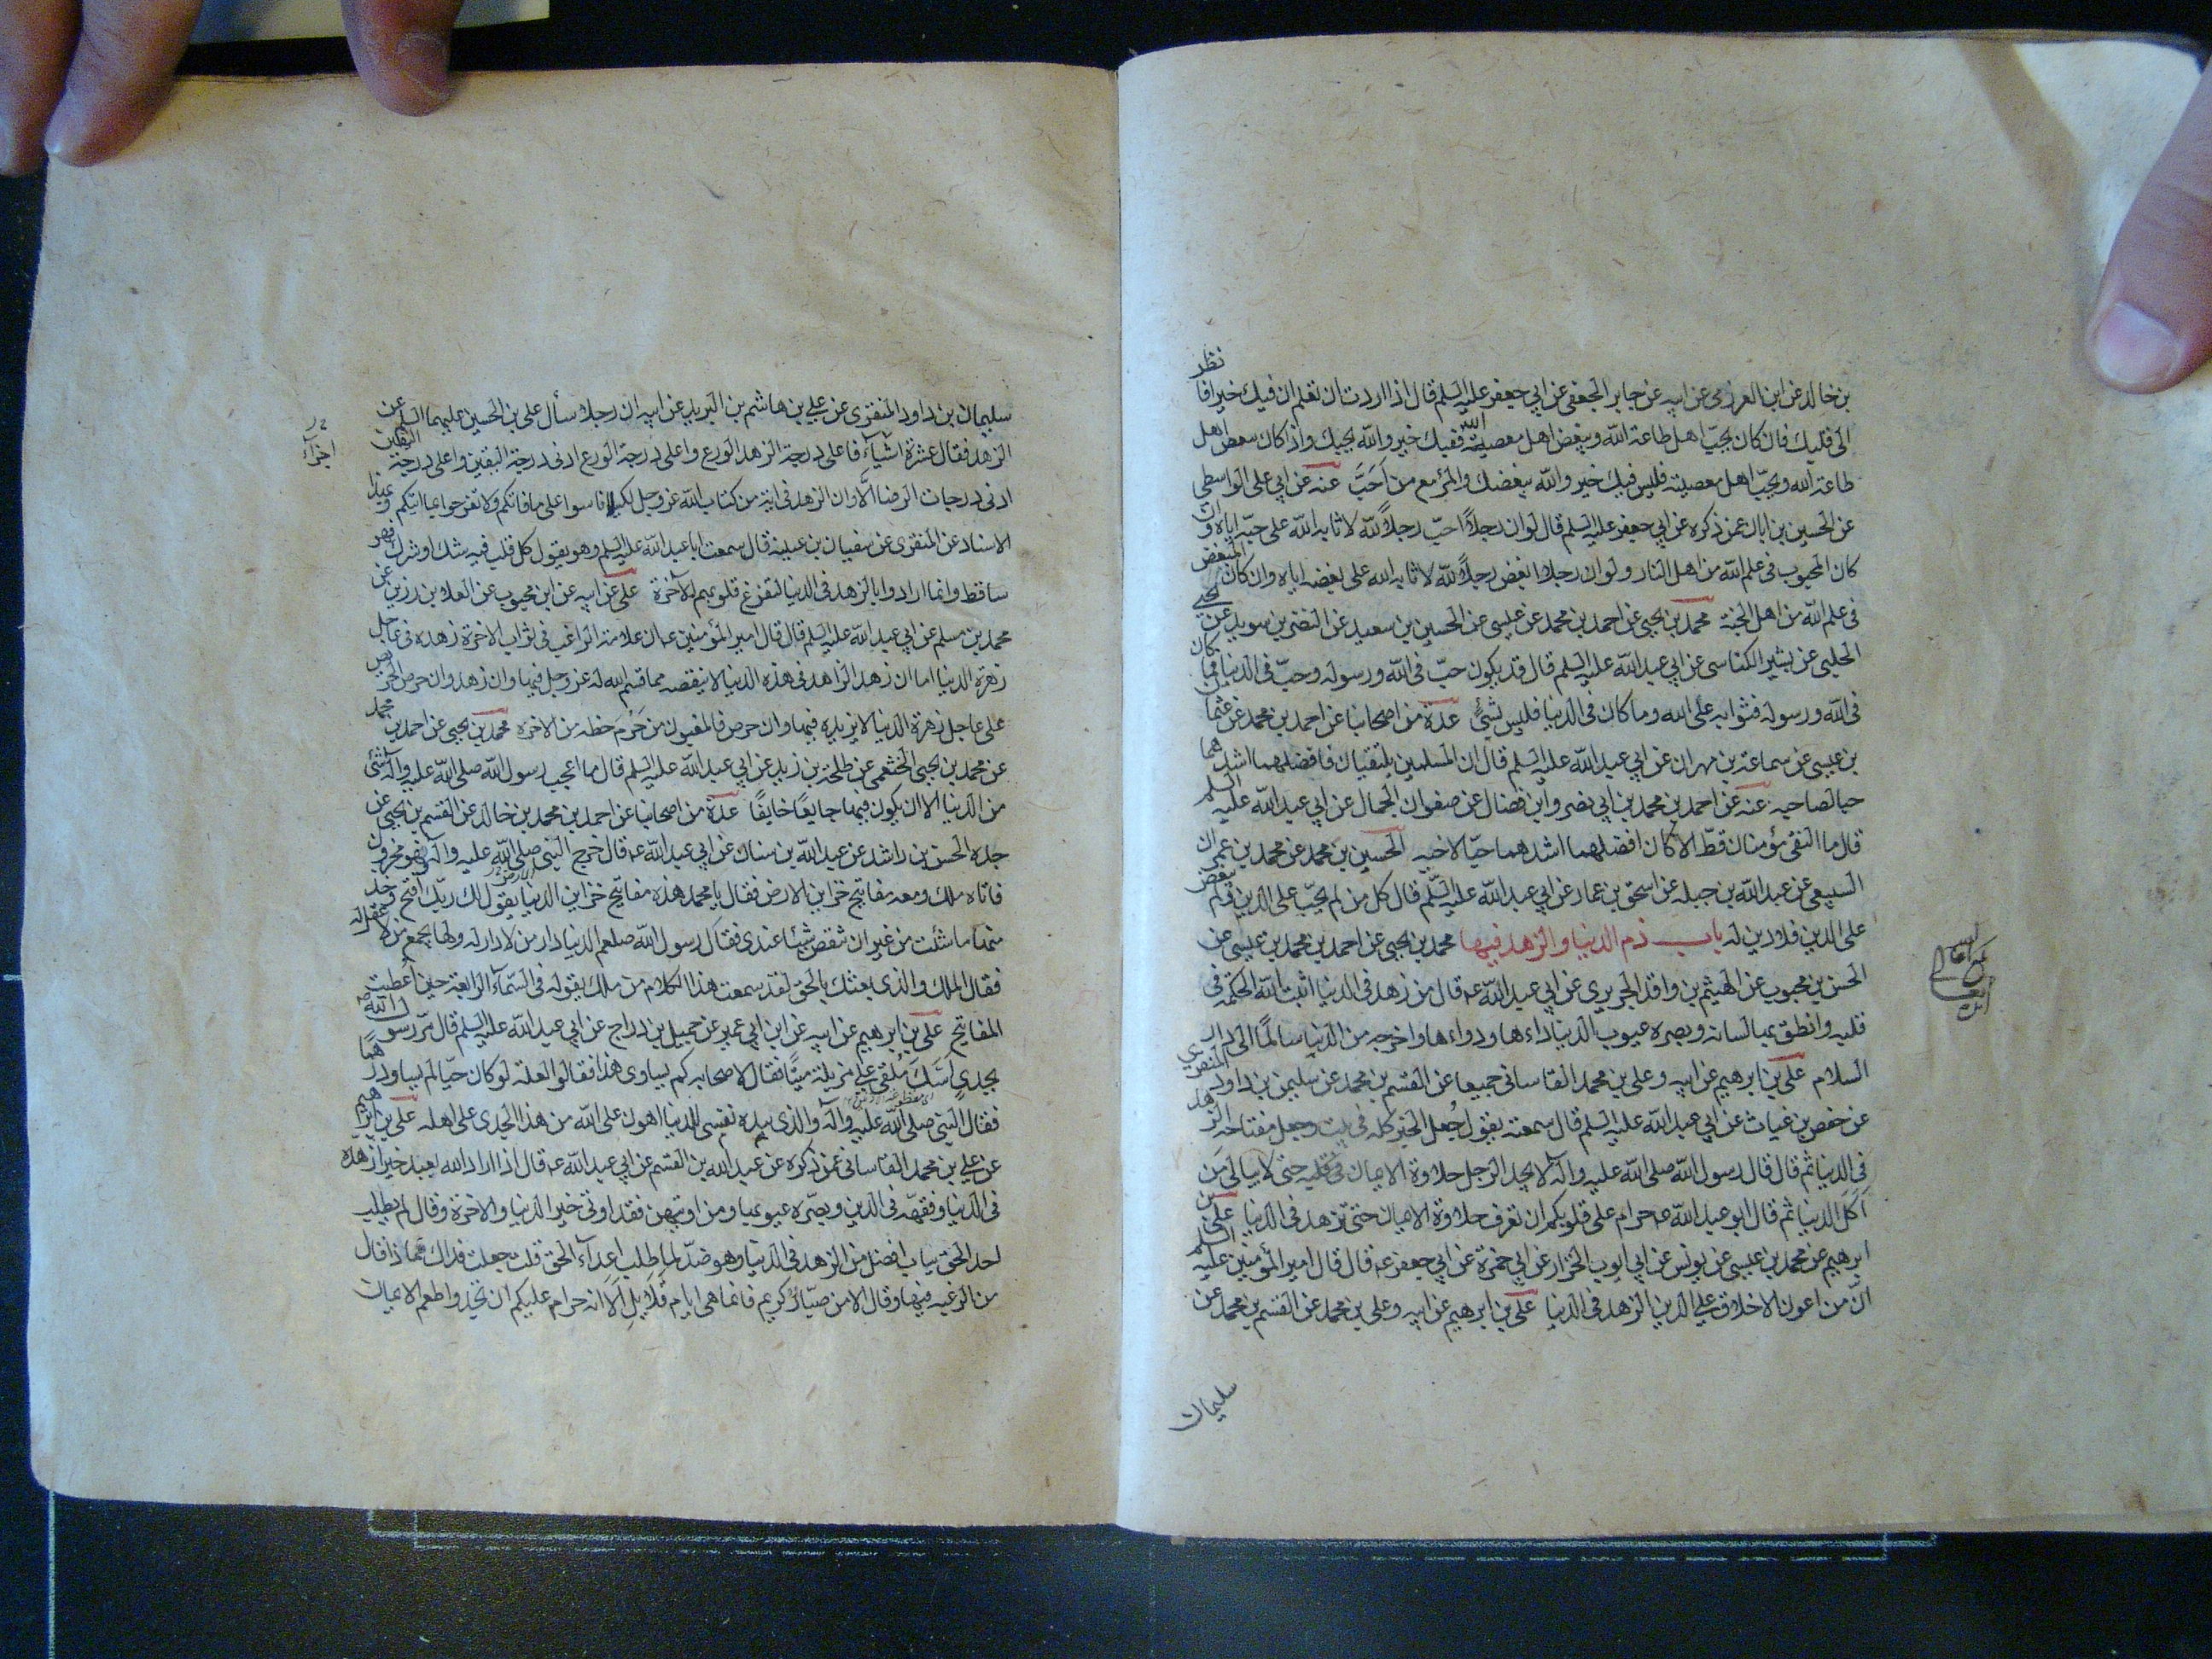 بن خالد عن ابن العرزمى عن ابيه عن جابر الجعفى عن ابي جعفر عليه السلم قال اذا اردت ان تعلم ان فيك خيرا فانظر
الى قلبك فان كان يحبّ اهل طاعة الله ويبغض اهل معصية الله ففيك خير والله يحبك واذا كان يبغض اهل
طاعة الله ويحبّ اهل معصيته فليس فيك خير والله يبغضك والمرء مع من احَبَّ عنه عن ابي على الواسطى
عن الحسين بن ابان عمن ذكره عن ابي جعفر عليه السلم قال لو ان رجلاً احبّ رجلاً لله لاثابه الله على حبّه اياه وان
كان المحبوب فى علم الله من اهل النار ولو ان رجلا ابغض رجلاً لله لاثابه الله على بغضه اياه وان كان المبغض
فى علم الله من اهل الجنة محمد بن يحيى عن احمد بن محمد عن عيسى عن الحسين بن سعيد عن النضر بن سويد عن يحيى
الحلبى عن بشير الكناسى عن ابي عبد الله عليه السلم قال قد يكون حبّ فى الله ورسوله وحبّ فى الدنيا فما كان
فى الله ورسوله فثوابه على الله وما كان فى الدنيا فليس بشئٍ عدة من اصحابنا عن احمد بن محمد عن عثمان
بن عيسى عن سماعة بن مهران عن ابي عبد الله عليه السلم قال ان المسلمين يلتقيان فافضلهما اشدهما
حبا لصاحبه عنه عن احمد بن محمد بن ابي نصر وابن فضال عن صفوان الجمال عن ابي عبد الله عليه السلم
قال ما التقى مؤمنان قطّ الا كان افضلهما اشدهما حبّا لاخيه الحسين بن محمد عن محمد بن عمران
السبيعى عن عبد الله بن جبله عن اسحق بن عمار عن ابي عبد الله عليه السلم قال كل من لم يحبّ على الدين ولم يبغض
على الدين فلا دين له باب ذم الدنيا والزهد فيها محمد بن يحيى عن احمد بن محمد بن عيسى عن
الحسن بن محبوب عن الهيثم بن واقد الحريرى عن ابي عبد الله عه قال من زهد فى الدنيا اثبت الله الحكمة فى
قلبه وانطق بها لسانه وبصره عيوب الدنيا داءها ودواءها واخرجه من الدنيا سالمًا الى دار
السلام على بن ابرهيم عن ابيه وعلى بن محمد القاسانى جميعا عن القسم بن محمد عن سليمن بن داود المنقرى
عن حفص بن غياث عن ابي عبد الله عليه السلم قال سمعته يقول جُعل الخير كله فى بيت وجعل مفتاحه الزهد
فى الدنيا ثم قال قال رسول الله صلى الله عليه وآله لا يجد الرجل حلاوة الايمان فى قلبه حتى لا يبالى مَن
اَكَلَ الدنيا ثم قال ابو عبد الله عه حرام على قلوبكم ان تعرف حلاوة الايمان حتى تزهد فى الدنيا على بن
ابرهيم عن محمد بن عيسى عن يونس عن ابي ايوب الخزاز عن ابي حمزة عن ابي جعفر عه قال قال امير المؤمنين عليه السلم
انّ من اعون الاخلاق على الدين الزهد فى الدنيا على بن ابرهيم عن ابيه وعلى بن محمد عن القسم بن محمد عن
سليمان
سليمان بن داود المنقرى عن على بن هاشم بن البريد عن ابيه ان رجلا سأل على بن الحسين عليهما السلم عن
الزهد فقال عشرة اشيآء فاعلى درجة الزهد الورع واعلى درجة الورع ادنى درجة اليقين واعلى درجة اليقين
اجزآء
ادنى درجات الرضا الّا وان الزهد فى اية من كتاب الله عز وجل لكيلا تاسوا على ما فاتكم ولا تفرحوا بما اتيكم وبهذا
الاسناد عن المنقرى عن سفيان بن عيينة قال سمعت ابا عبد الله عليه السلم وهو يقول كل قلب فيه شك او شرك فهو
ساقط وانما ارادوا بالزهد فى الدنيا لتفرغ قلوبهم للآخرة على عن ابيه عن ابن محبوب عن العلا بن رزين عن
محمد بن مسلم عن ابي عبد الله عليه السلم قال قال امير المؤمنين عه ان علامة الراغب فى ثواب الاخرة زهده فى عاجل
زهرة الدنيا اما ان زهد الزاهد فى هذه الدنيا لا ينقصه مما قسم الله له عز وجل فيها وان زهد وان حرص الحريص
على عاجل زهرة الدنيا لا يزيده فيها وان حرص فالمغبون من حُرِمَ حظه من الاخره محمد بن يحيى عن احمد بن محمد
عن محمد بن يحيى الخثعمى عن طلحة بن زيد عن ابي عبد الله عليه السلم قال ما اعجب رسول الله صلى الله عليه وآله شئ
من الدنيا الا ان يكون فيها جايعًا خايفًا عدة من اصحابنا عن احمد بن محمد بن خالد عن القسم بن يحيى عن
جده الحسن بن راشد عن عبد الله بن سنان عن ابي عبد الله عه قال خرج النبى صلى الله عليه وآله وهو محزون
فاتاه ملك ومعه مفاتيح خزاين الارض فقال يا محمد هذه مفاتيح خزاين الدنيا يقول لك ربّك افتح وخذ
منها ما شئت من غير ان تنقص شيئا عندى فقال رسول الله صلعم الدنيا دار من لا دار له ولها يجمع من لا عقل له
فقال الملك والذى بعثك بالحق لقد سمعت هذا الكلام من ملك يقوله فى السّمآء الرابعة حين اُعطيت
المفاتيح على بن ابرهيم عن ابيه عن ابن ابي عمير عن جميل بن دراج عن ابي عبد الله عليه السلم قال مرّ رسول الله ص
بجدىٍ اَسَكَّ مُلقى على مزبلة ميتًا فقال لاصحابه كم يساوى هذا فقالوا لعلّه لو كان حيّا لم يساو درهمًا
فقال النبى صلى الله عليه وآله والذى بيده نفسى للدنيا اهون على الله من هذا الجدى على اهله على بن ابرهيم
عن على بن محمد القاسانى عمن ذكره عن عبد الله بن القسم عن ابي عبد الله عه قال اذا اراد الله بعبد خيرا زهّده
فى الدنيا وفقهّه فى الدين وبصّره عيوبها ومن اوتيهن فقد اوتى خير الدنيا والاخرة وقال لم يطلب
احد الحق بباب افضل من الزهد فى الدنيا وهو ضدّ لما طلب اعدآء الحق قلت جعلت فداك مما ذا قال
من الرغبه فيها وقال الا من صبّار كريم فانما هى ايام قلايل الا انه حرام عليكم ان تجدوا طعم الايمان